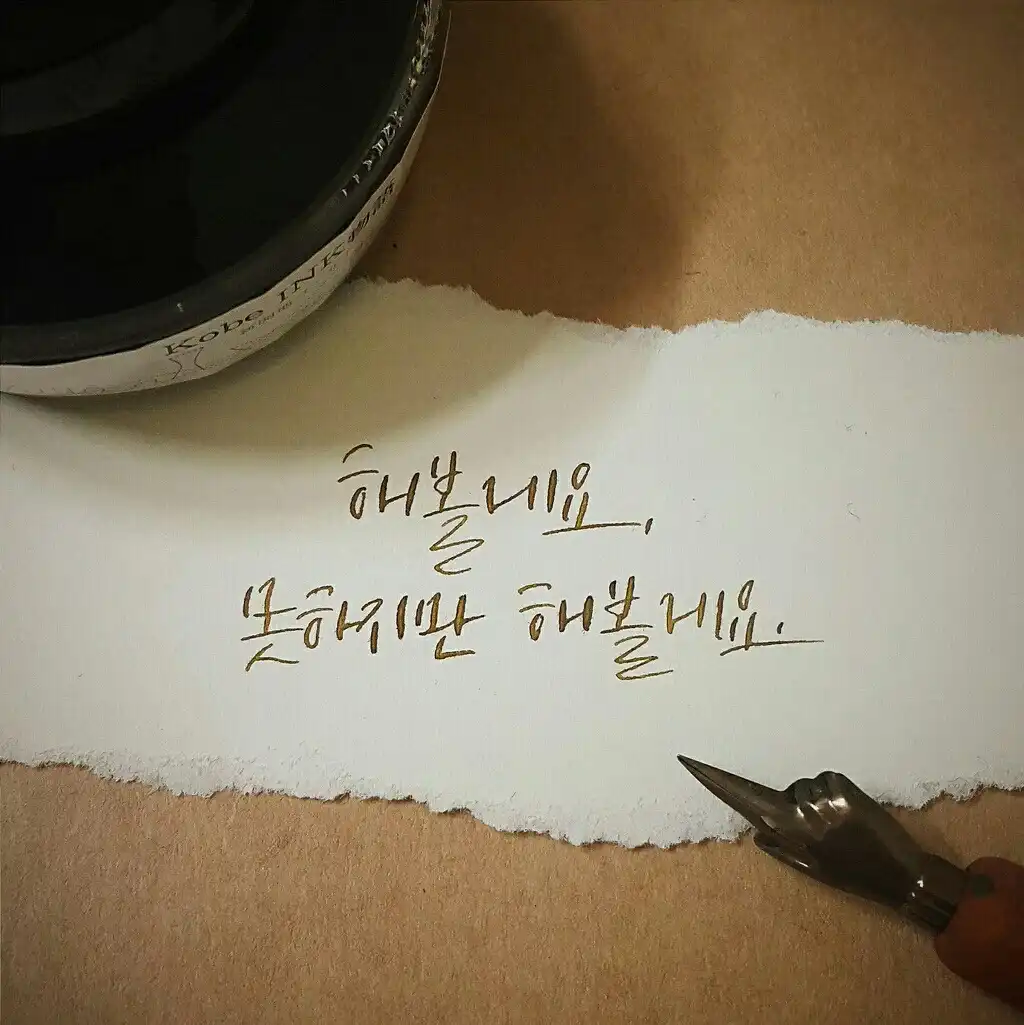 Kobe INK物語
해볼게요,
못하지만 해볼게요.